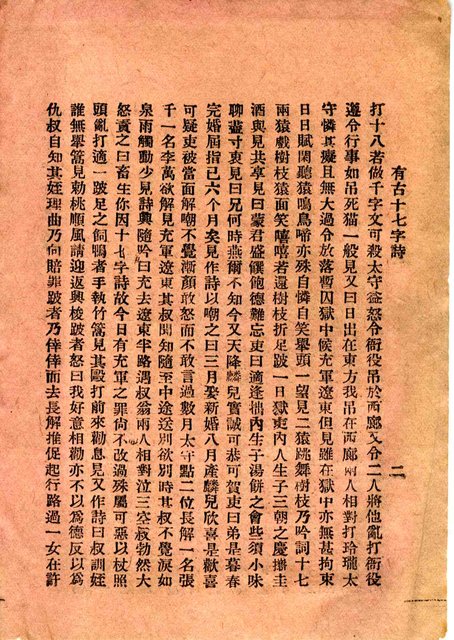 有古十七字詩
二
打十八若做千字文可殺太守益怒令衙役吊於西廊又令二人將他亂打衙役
遵令行事如吊死猫一般見又曰日出在東方我吊在西廊兩人相對打玲瓏太
守憐其癡且無大過令放落暫囚獄中候充軍遼東但見雖在獄中亦無甚拘束
日日賦閑聽猿鳴鳥啼亦殊自憐自笑舉頭一望見二猿跳舞樹枝乃吟詞十七
兩猿戲樹枝猿面笑嘻嘻若還樹枝折足跛一日獄吏內人生子三朝之慶攜圭
酒與見共享見曰蒙君盛饌飽德難忘吏曰適逢拙內生子湯餅之會些須小味
聊盡寸衷見曰兄何時燕爾不知今又天降麟兒實誠可恭可賀吏曰弟是暮春
完婚屈指已六個月矣見作詩以嘲之曰三月娶新婚八月產麟兒欣喜是歡喜
可疑吏被當面解嘲不覺漸顏敢怒而不敢言過數月太守點二位長解一名張
千一名李萬欲解見充軍遼東其叔聞知隨至中途送別欲別時其叔不覺淚如
泉雨觸動少見詩興隨吟曰充去遼東半路遇叔翁兩人相對泣三空叔勃然大
怒責之曰畜生你因十七字詩故今日有充軍之罪尙不改過殊屬可惡以杖照
頭亂打適一跛足之飼鴨者手執竹篙見其毆打前來勸息見又作詩曰叔訓姪
誰無舉篙見勅桃順風請迎返興梭跛者怒曰我好意相勸亦不以爲德反以爲
仇叔自知其姪理曲乃向賠罪跛者乃倖倖而去長解推促起行路過一女在許